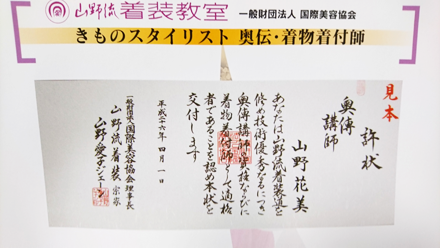 山野流着装教室 一般財団法人 国際美容協会
きものスタイリスト 奥伝・着物着付師
見本
許状
奥傳
講師
山野花美
あなたは山野流着装道を
修め技術優秀なるにつき
奥傳講師の資格ならびに
着物着付師として適格
者であることを認め本状を
交付します
平成二十六年四月一日
一般財団法人国際美容協会理事長
山野流着装宗家
山野愛子ジェーン